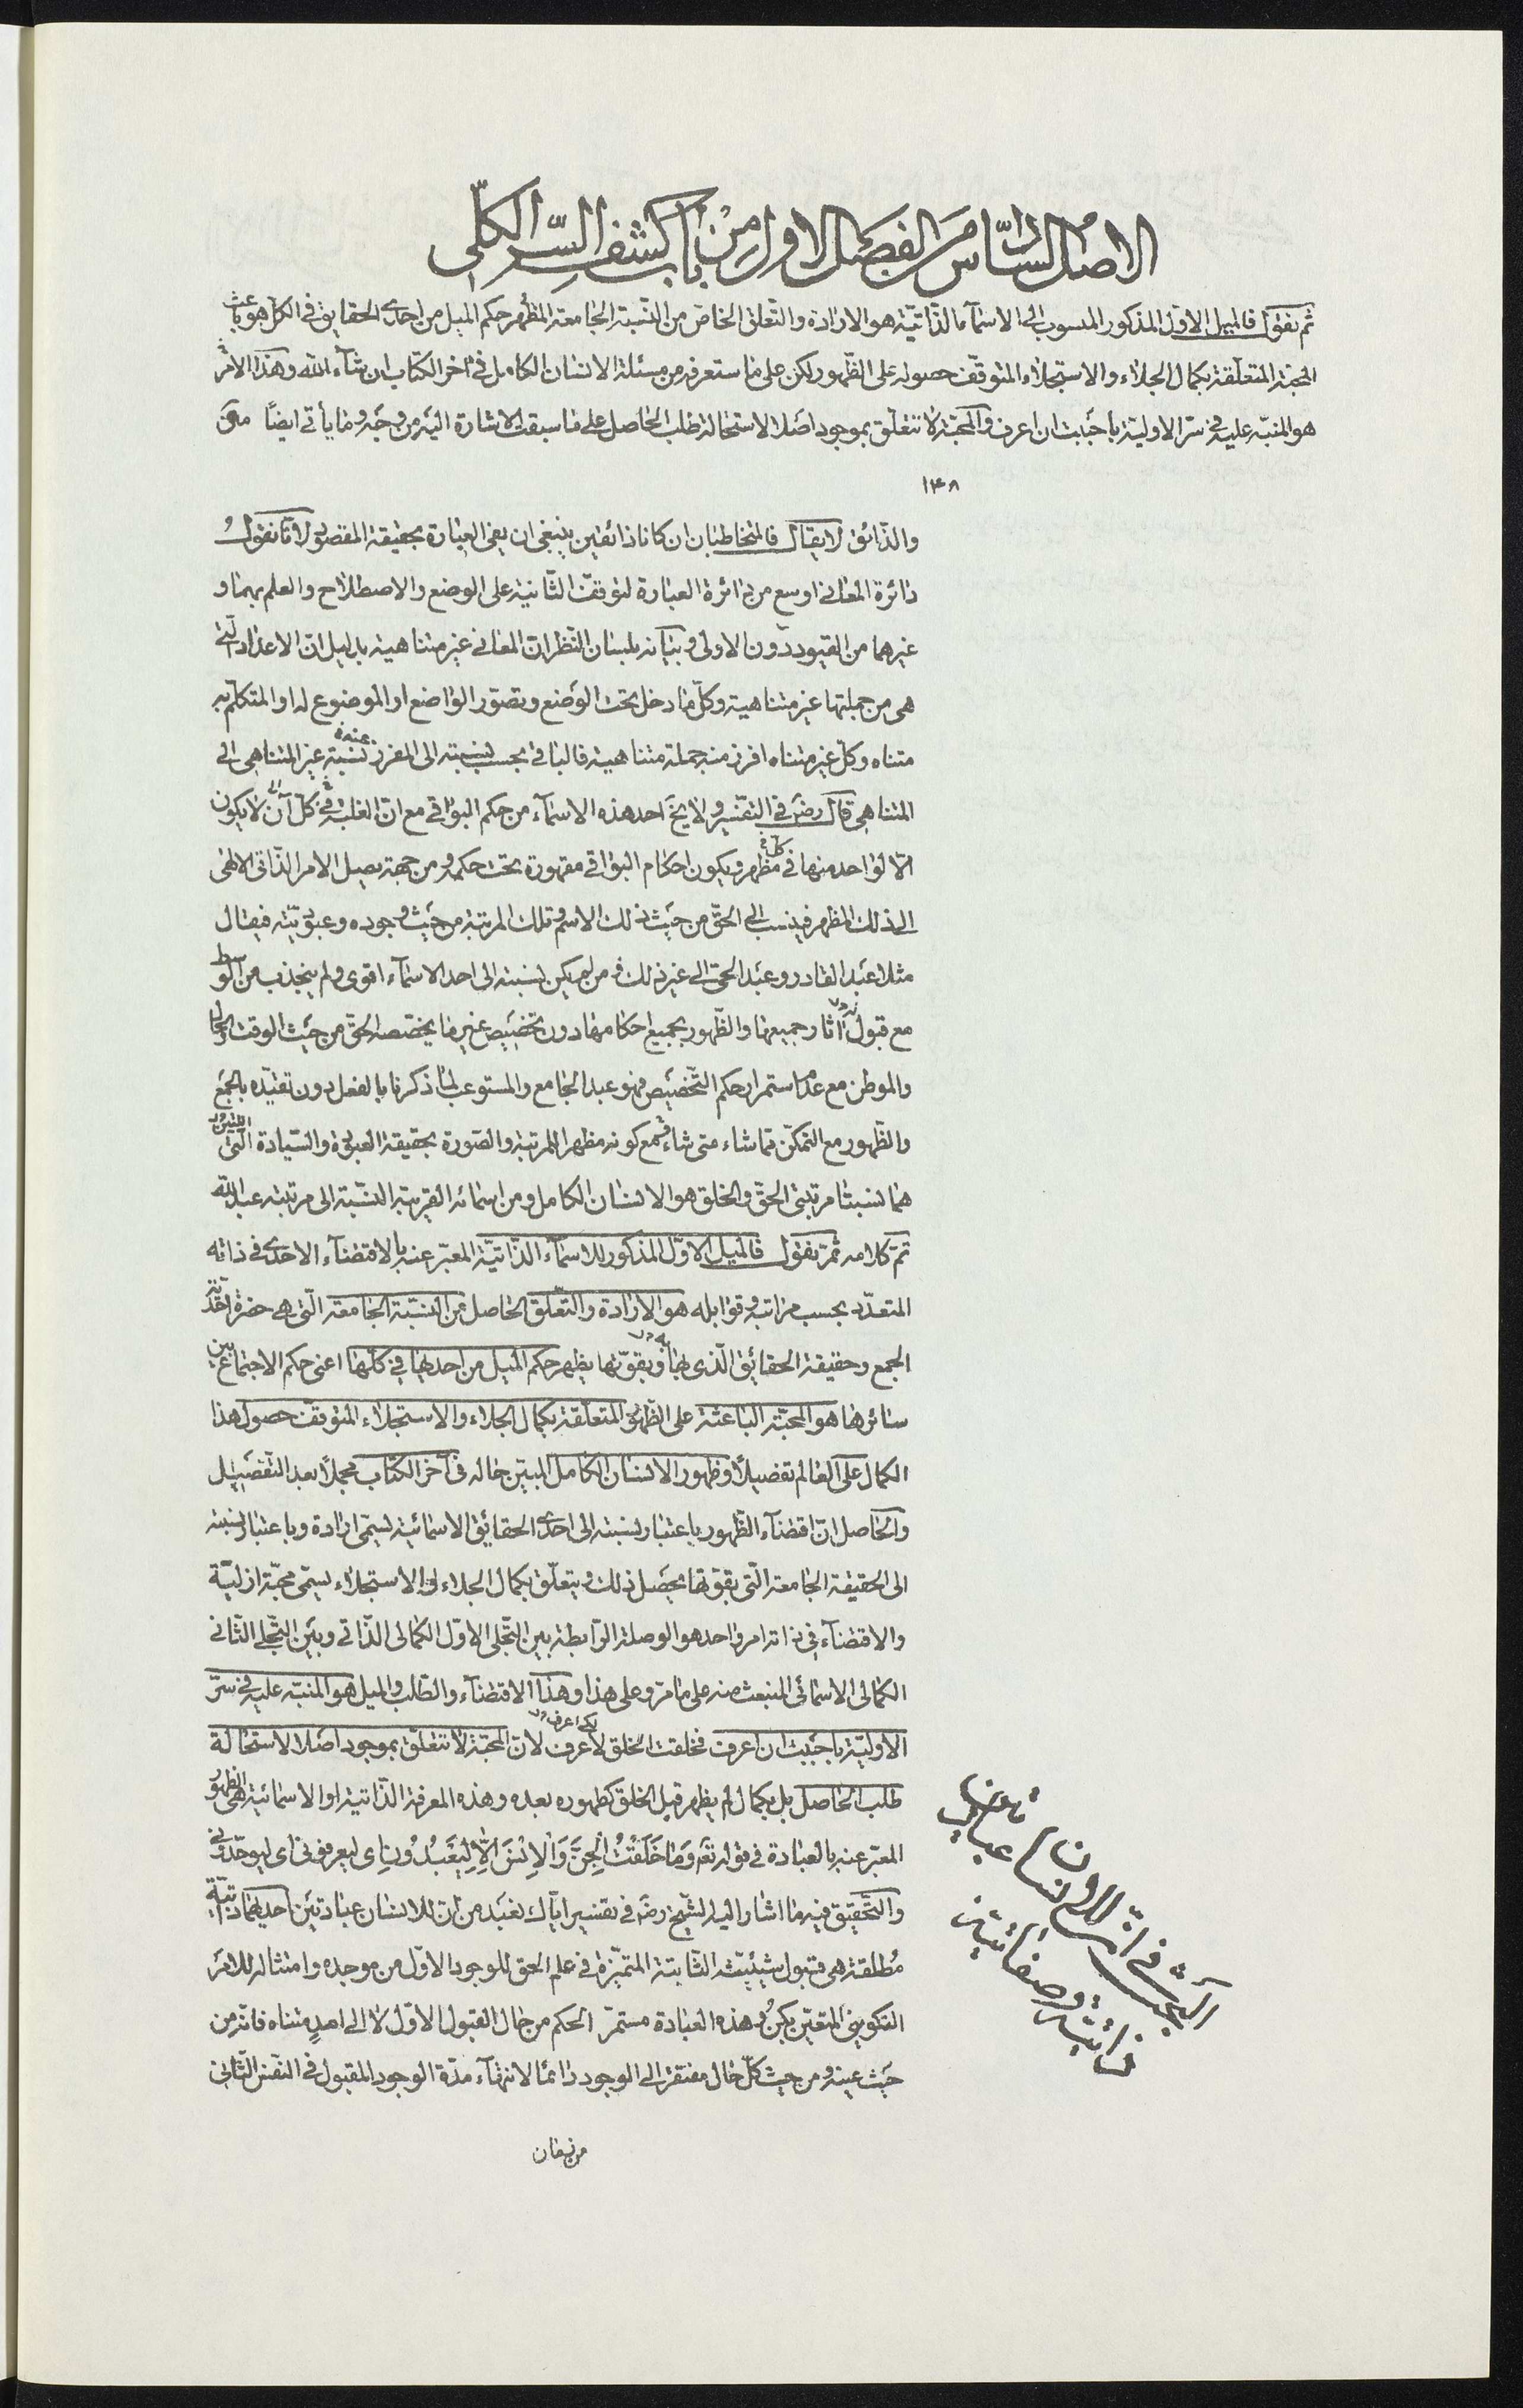 الاصل السادس من الفصل الاول من باب كشف السّر الكلّى
ثم نقول فالميل الاوّل المذكور المنسوب الى الاسمآء الذّاتيّة هو الارادة والتّعلق الخاص من النّسبة الجامعة المظهر حكم الميل من احدى الحقايق فى الكل هو باعث
المحبّة المتعلّقة بكمال الجلاء والاستجلاء المتوقّف حصوله على الظّهور لكن على ما ستعرفه من مسئلة الانسان الكامل فى آخر الكتاب ان شآء الله وهذا الامر
هو المنبّه عليه فى سرّ الاولية باحببت ان اعرف والمحبّة لا تتعلّق بموجود اصلا لاستحالة طلب الحاصل على ما سبقت الاشارة اليه من وجه وما يأتى ايضًا
١٣٨
والذّائق لا يقال فالمتخاطبان ان كانا ذائقين ينبغى ان يفى العبارة بحقيقة المقصود لانّا نقول
دائرة المعانى اوسع من دائرة العبارة لتوقف الثّانية على الوضع والاصطلاح والعلم بهما و
غيرهما من القيود دون الاولى وبيانه بلسان النّظر انّ المعانى غير متناهية بدليل انّ الاعداد الّتى
هى من جملتها غير متناهية وكلّ ما دخل تحت الوضع وتصوّر الواضع او الموضوع له او المتكلّم به
متناه وكلّ غير متناه افرز منه جملة متناهية فالباقى بحسب نسبته الى المفرز عنه نسبة غير المتناهى الى
المتناهى قال رضَ فى التفسير ولا يخ احد هذه الاسمآء من حكم البواقى مع انّ الغلبة فى كلّ آن لا يكون
الّا لواحد منها فى كلّ مظهر ويكون احكام البواقى مقهورة تحت حكمه ومن جهته يصل الامر الذّاتى الالهى
الى ذلك المظهر فينسب الى الحقّ من حيث ذلك الاسم وتلك المرتبة من حيث وجوده وعبوديّته فيقال
مثلا عبد القادر وعبد الحى الى غير ذلك ومن لم يكن نسبته الى احد الاسمآء اقوى ولم ينجذب من الوسط
مع قبول آثار جميعها والظّهور بجميع احكامها دون تخصيص غير ما يخصّصه الحقّ من حيث الوقت والحال
والموطن مع عدم استمرار حكم التّخصيص فهو عبد الجامع والمستوعب لما ذكرنا بالفعل دون تقيّده بالجمع
والظّهور مع التمكّن ممّا شاء متى شاء مع كونه مظهرا للمرتبة والصّورة بحقيقة العبوديّة والسّيادة اللّتين
هما نسبتا مرتبتى الحقّ والخلق هو الانسان الكامل ومن اسمائه القريبة النّسبة الى مرتبته عبد الله
تمّ كلامه ثمّ نقول فالميل الاوّل المذكور للاسمآء الذّاتيّة المعبّر عنه بالاقتضآء الاحدى فى ذاته
المتعدّد بحسب مراتبه وقوابله هو الارادة والتّعلق الحاصل من النّسبة الجامعة الّتى هى حضرة احديّة
الجمع وحقيقة الحقائق الّذى بها وبقوّتها يظهر حكم الميل من احديها فى كلّها اعنى حكم الاجتماع بين
سائرها هو المحبّة الباعثة على الظّهور المتعلّقة بكمال الجلاء والاستجلاء المتوقف حصول هذا
الكمال على العالم تفصيلًا وظهور الانسان الكامل المبيّن حاله فى آخر الكتاب مجملًا بعد التّفصيل
والحاصل انّ اقتضآء الظّهور باعتبار نسبته الى احدى الحقائق الاسمائيّة يسمّى ارادة وباعتبار نسبته
الى الحقيقة الجامعة الّتى بقوّتها يحصل ذلك ويتعلّق بكمال الجلاء او الاستجلاء يسمّى محبّة ازليّة
والاقتضآء فى ذاته امر واحد هو الوصلة الرّابطة بين التّجلى الاوّل الكمالى الذّاتى وبين التّجلى الثّانى
الكمالى الاسمائى المنبعث منه على ما مرّ وعلى هذا وهذا الاقتضآء والطّلب والميل هو المنبّه عليه فى سرّ
الاوليّة باحببت ان اعرف فخلقت الخلق لاعرف لانّ المحبّة لا تتعلّق بموجود اصلا لاستحالة
طلب الحاصل بل بكمال لم يظهر قبل الخلق كظهوره بعده وهذه المعرفة الذّاتية او الاسمائية هى الظهور
المعبّر عنه بالعبادة فى قوله تعَ وَمَا خَلَقْتُ الْجِنَّ وَالْاِنْسَ اِلَّا لِيَعْبُدُونِ اى ليعرفونى اى ليوحّدونى
والتّحقيق فيه ما اشار اليه الشّيخ رضَ فى تفسير ايّاك نعبد من انّ للانسان عبادتين احديهما ذاتيّة
مُطلقة هى قبول شيئيّته الثّابتة المتميّزة فى علم الحق للوجود الاوّل من موجده وامتثاله للامر
التكوينىّ المتعيّن بكن وهذه العبادة مستمرّ الحكم من حال القبول الاوّل لا الى امدٍ متناه فانّه من
حيث عينه ومن حيث كلّ حال مفتقر الى الوجود دائما لانتهآء مدّة الوجود المقبول فى النّفس الثّانى
من زمان
البحث فى انّ للانسان عبادتين
ذاتيّة وصفاتيّة